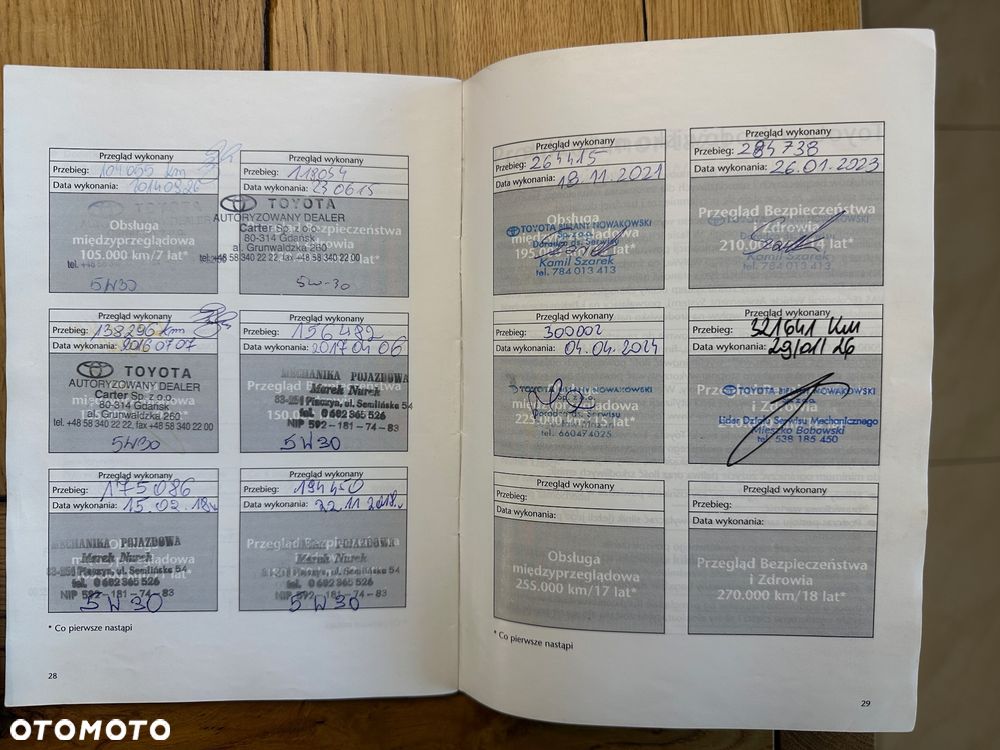 Przegląd wykonany
Przebieg: 104055 km
Data wykonania: 20140926
TOYOTA
Obsługa
międzyprzeglądowa
105.000 km/7 lat*
5W30
Przegląd wykonany
Przebieg: 118054
Data wykonania: 23 06 15
TOYOTA
AUTORYZOWANY DEALER
Carter Sp. z o.o.
80-314 Gdańsk
al. Grunwaldzka 260
tel. +48 58 340 22 22, fax +48 58 340 22 00
5W-30
Przegląd wykonany
Przebieg: 138296 km
Data wykonania: 2016 07 07
TOYOTA
AUTORYZOWANY DEALER
Carter Sp. z o.o.
80-314 Gdańsk
al. Grunwaldzka 260
tel. +48 58 340 22 22, fax +48 58 340 22 00
5W30
Przegląd wykonany
Przebieg: 156482
Data wykonania: 2017 04 06
MECHANIKA POJAZDOWA
Marek Nurek
tel. 0 692 365 526
NIP 592-181-74-83
5W30
Przegląd wykonany
Przebieg: 175086
Data wykonania: 15.02.18
MECHANIKA POJAZDOWA
Marek Nurek
tel. 0 692 365 526
NIP 592-181-74-83
5W30
Przegląd wykonany
Przebieg: 194450
Data wykonania: 22.11 2018
Marek Nurek
tel. 0 692 365 526
NIP 592-181-74-83
5W30
* Co pierwsze nastąpi
28
Przegląd wykonany
Przebieg: 264415
Data wykonania: 18.11.2021
TOYOTA BIELANY NOWAKOWSKI
Doradca ds. Serwisu
Kamil Szarek
tel. 784 013 413
Przegląd wykonany
Przebieg: 284738
Data wykonania: 26.01.2023
Przegląd Bezpieczeństwa
i Zdrowia
Kamil Szarek
tel. 784 013 413
Przegląd wykonany
Przebieg: 300002
Data wykonania: 04.04.2024
TOYOTA BIELANY NOWAKOWSKI
międzyprzeglądowa
Doradca ds. Serwisu
tel. 660474025
Przegląd wykonany
Przebieg: 321641 KM
Data wykonania: 29/01/26
TOYOTA BIELANY NOWAKOWSKI
i Zdrowia
Lider Działu Serwisu Mechanicznego
Mieszko Bobowski
tel. 538 185 450
Przegląd wykonany
Przebieg:
Data wykonania:
Obsługa
międzyprzeglądowa
255.000 km/17 lat*
Przegląd wykonany
Przebieg:
Data wykonania:
Przegląd Bezpieczeństwa
i Zdrowia
270.000 km/18 lat*
* Co pierwsze nastąpi
29
OTOMOTO